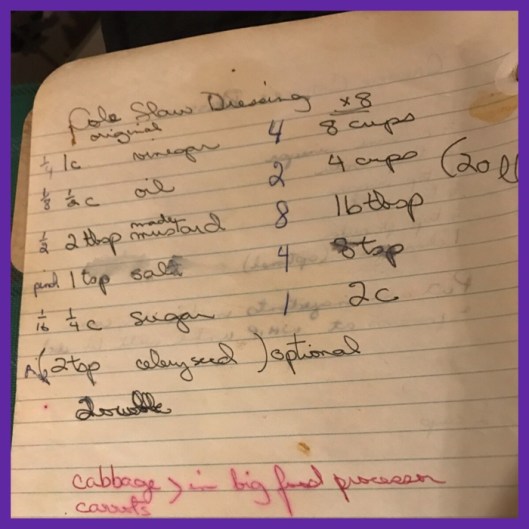 Cole Slaw Dressing x8
original
1/4 1c vinegar 4 8 cups
1/8 1/2 c oil 2 4 cups (20
1/2 2 tbsp made mustard 8 16 tbsp
1 tsp salt 4 8 tsp
1/16 1/4 c sugar 1 2c
(2 tsp celery seed) optional
cabbage > in big food processor
carrots